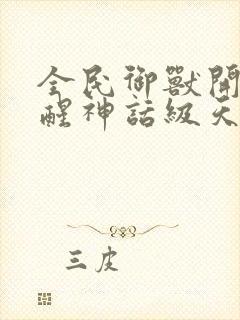 全民御獸開
醒神話級天
三皮